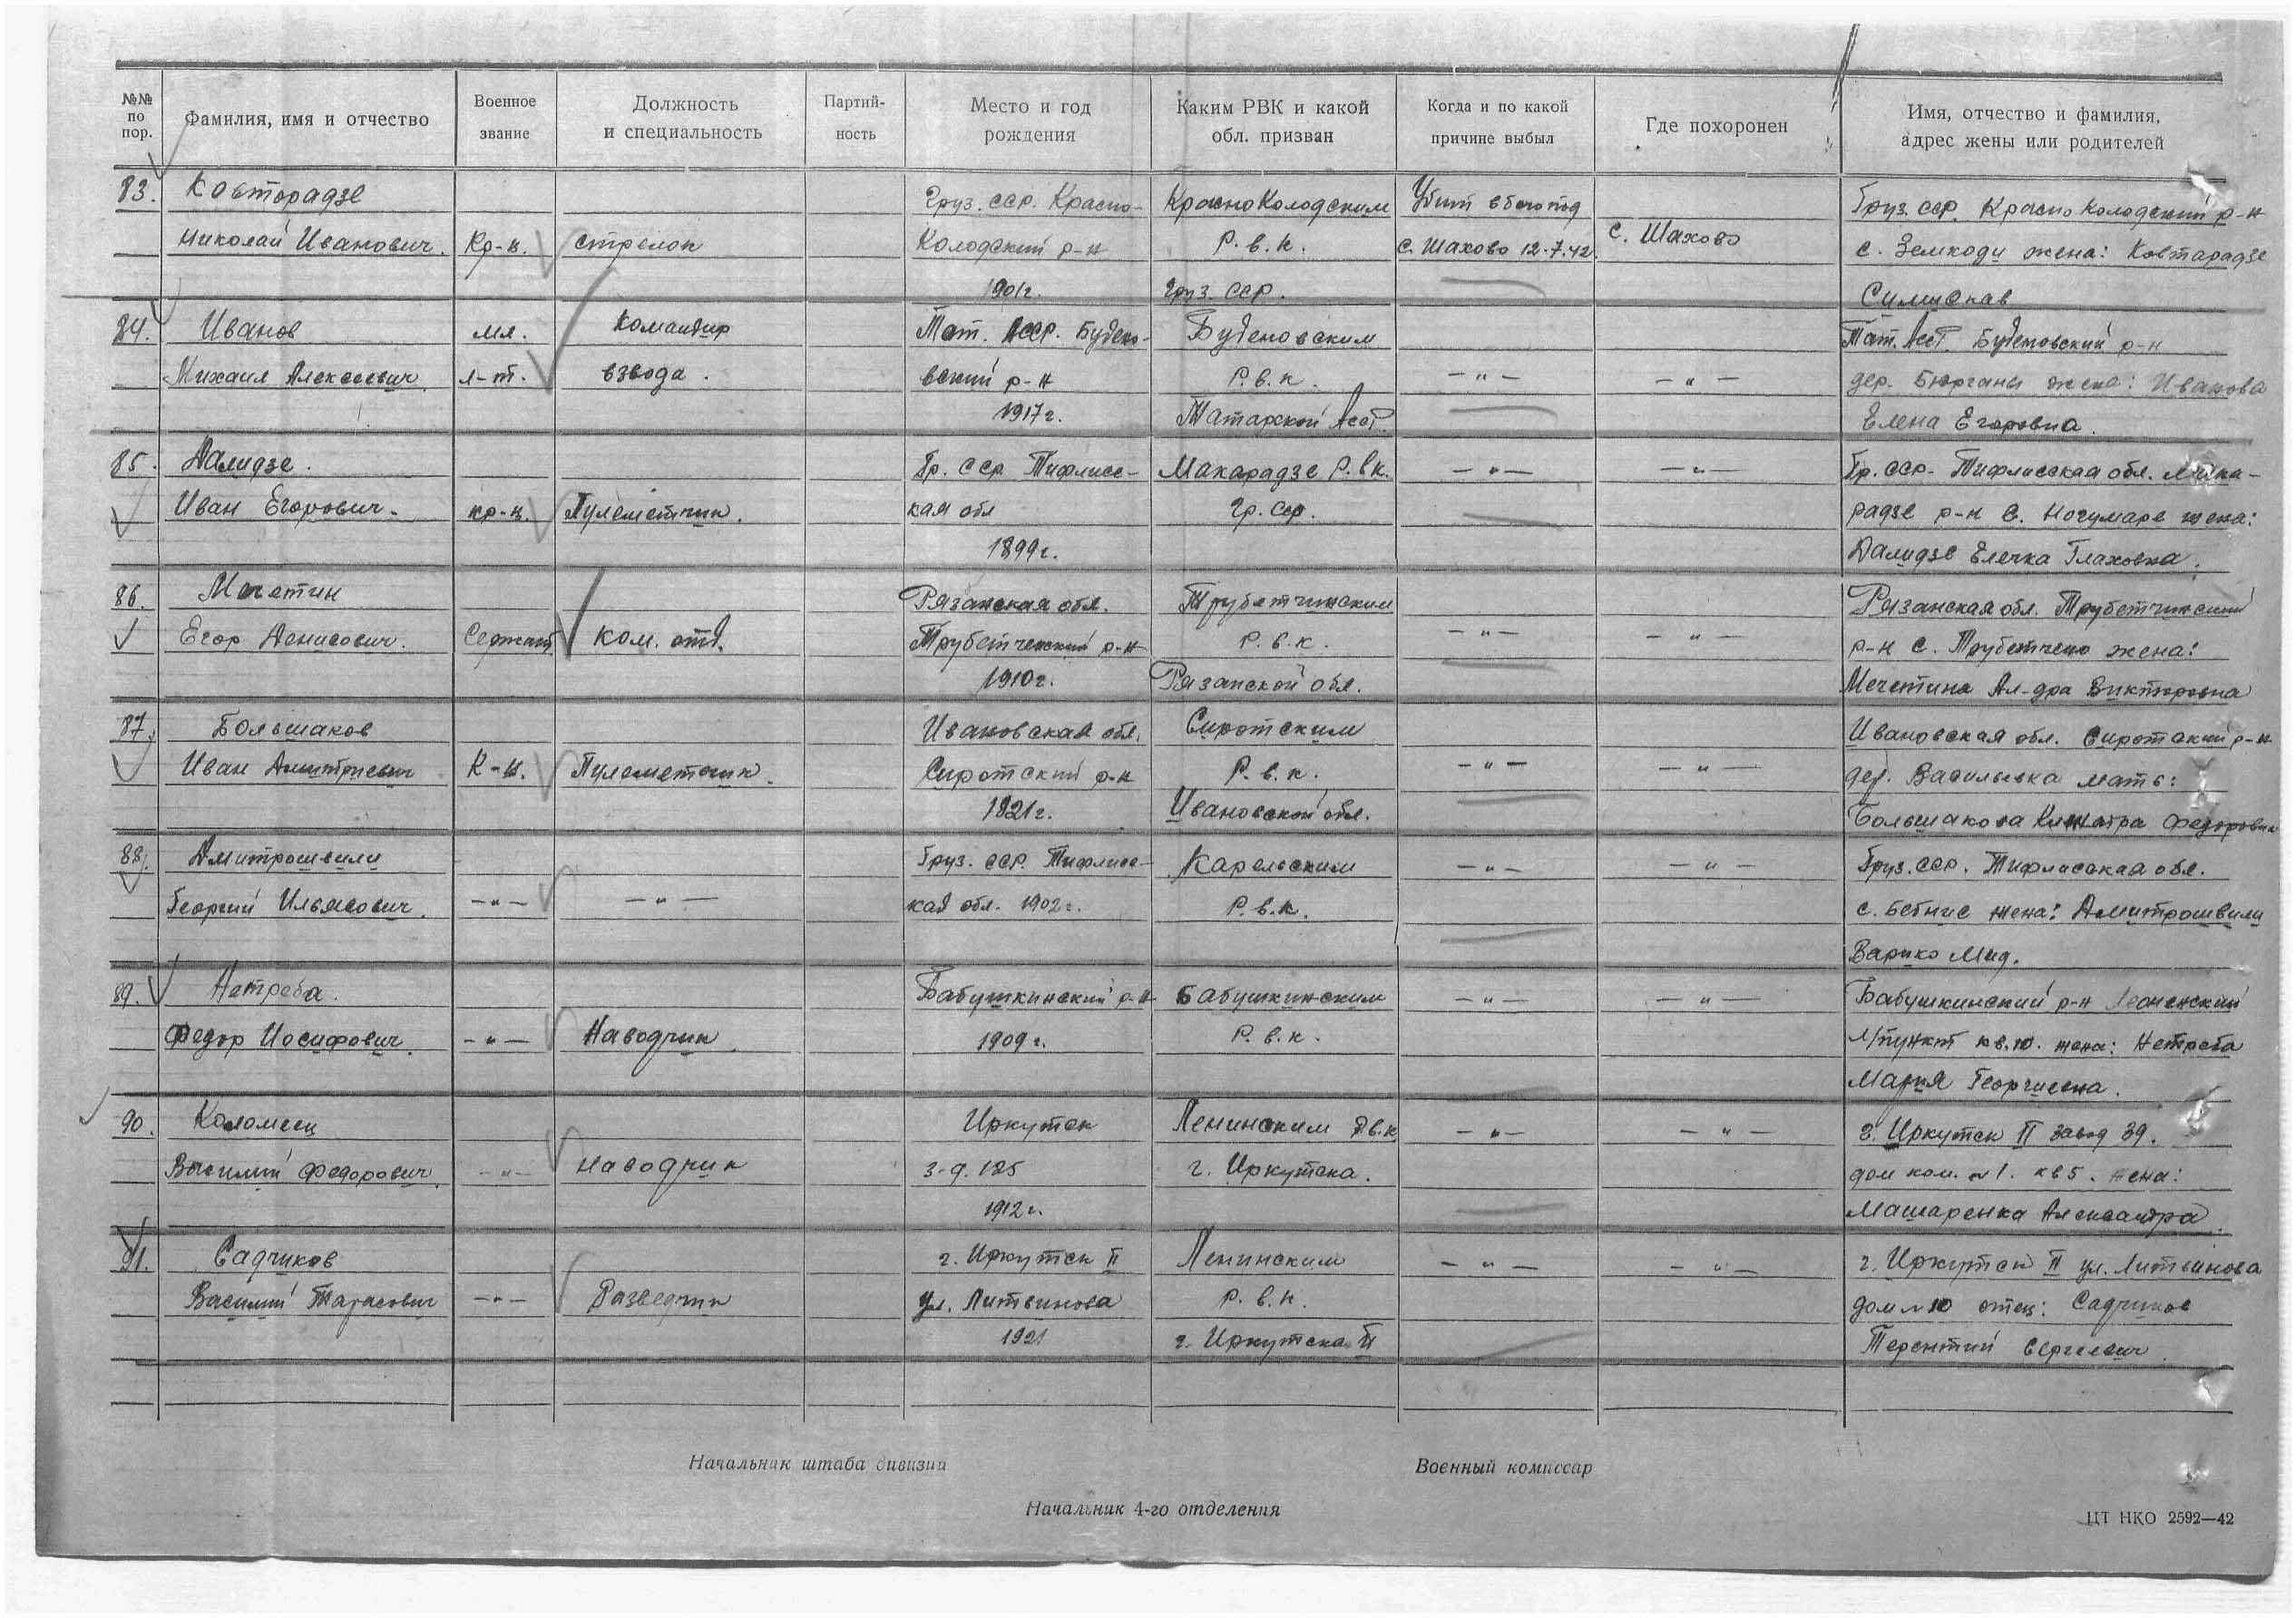 №№ по пор.
Фамилия, имя и отчество
Военное звание
Должность и специальность
Партийность
Место и год рождения
Каким РВК и какой обл. призван
Когда и по какой причине выбыл
Где похоронен
Имя, отчество и фамилия, адрес жены или родителей
83. Ковторадзе
Николай Иванович. Кр-ц. стрелок
Груз. сср. Красно-
Колодский р-н
1901г.
КрасноКолодским
Р.в.к.
Груз. сср.
Убит в бою под
с. Шахово 12.7.42
с. Шахово
Груз. сср. Красно Колодский р-н
с. Земкоди жена: Ковтарадзе
84. Иванов
Михаил Алексеевич
мл.
л-т.
Командир
взвода.
Тат. АССР. Будено-
вский р-н
1917г.
Буденовским
Р.в.к.
Татарской Асст.
—"—
—"—
Тат. Асст. Буденовский р-н
дер. Бюрганы жена: Иванова
Елена Егоровна.
85. Далидзе.
Иван Егорович. кр-ц. Пулеметчик.
Гр. сср Тифлисс-
кая обл
1899г.
Макарадзе Р.вк.
Гр. сср.
—"—
—"—
Гр. сср. Тифлисская обл. Мака-
радзе р-н с. Ногумаре жена:
Далидзе Елечка Глаховна.
86. Мечетин
Егор Денисович. Сержант Ком. отд.
Рязанская обл.
Трубетченский р-н
1910г.
Трубетчинским
Р.в.к.
Рязанской обл.
—"—
—"—
Рязанская обл. Трубетчинский
р-н с. Трубетчено жена:
Мечетина Ал-дра Викторовна
87. Большаков
Иван Дмитриевич К-ц. Пулеметчик.
Ивановская обл.
Сиротский р-н
1821г.
Сиротским
Р.в.к.
Ивановской обл.
—"—
—"—
Ивановская обл. Сиротский р-н
дер. Васильевка мать:
Большакова Федоровна
88. Дмитрошвили
Георгий Ильясович. —"— —"—
Груз. сср. Тифлисс-
кая обл. 1902г.
Карельским
Р.в.к.
—"—
—"—
Груз. сср. Тифлисская обл.
с. Бебнис жена: Дмитрошвили
Варико Мид.
89. Нетреба.
Федор Иосифович —"— Наводчик
Бабушкинский р-н
1909г.
Бабушкинским
Р.в.к.
—"—
—"—
Бабушкинский р-н
М/пункт кв.10. жена: Нетреба
Мария Георгиевна.
90. Коломеец
Василий Федорович —"— Наводчик
Иркутск
3-д. 125
1912г.
Ленинским Рв.к
г. Иркутска.
—"—
—"—
г. Иркутск II завод 39.
дом ком. №1. кв 5. жена:
Машаренка Александра
91. Садчиков
Василий Тарасович —"— Разведчик
г. Иркутск II
ул. Литвинова
1921
Ленинским
Р.в.к.
г. Иркутска II
—"—
—"—
г. Иркутск II ул. Литвинова
дом №10 отец: Садчиков
Терентий Сергеевич
Начальник штаба дивизии
Военный комиссар
Начальник 4-го отделения
ЦТ НКО 2592—42